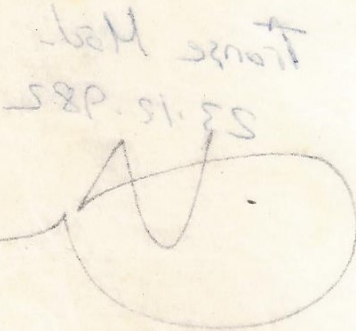 Transe Mod.
23.12.982